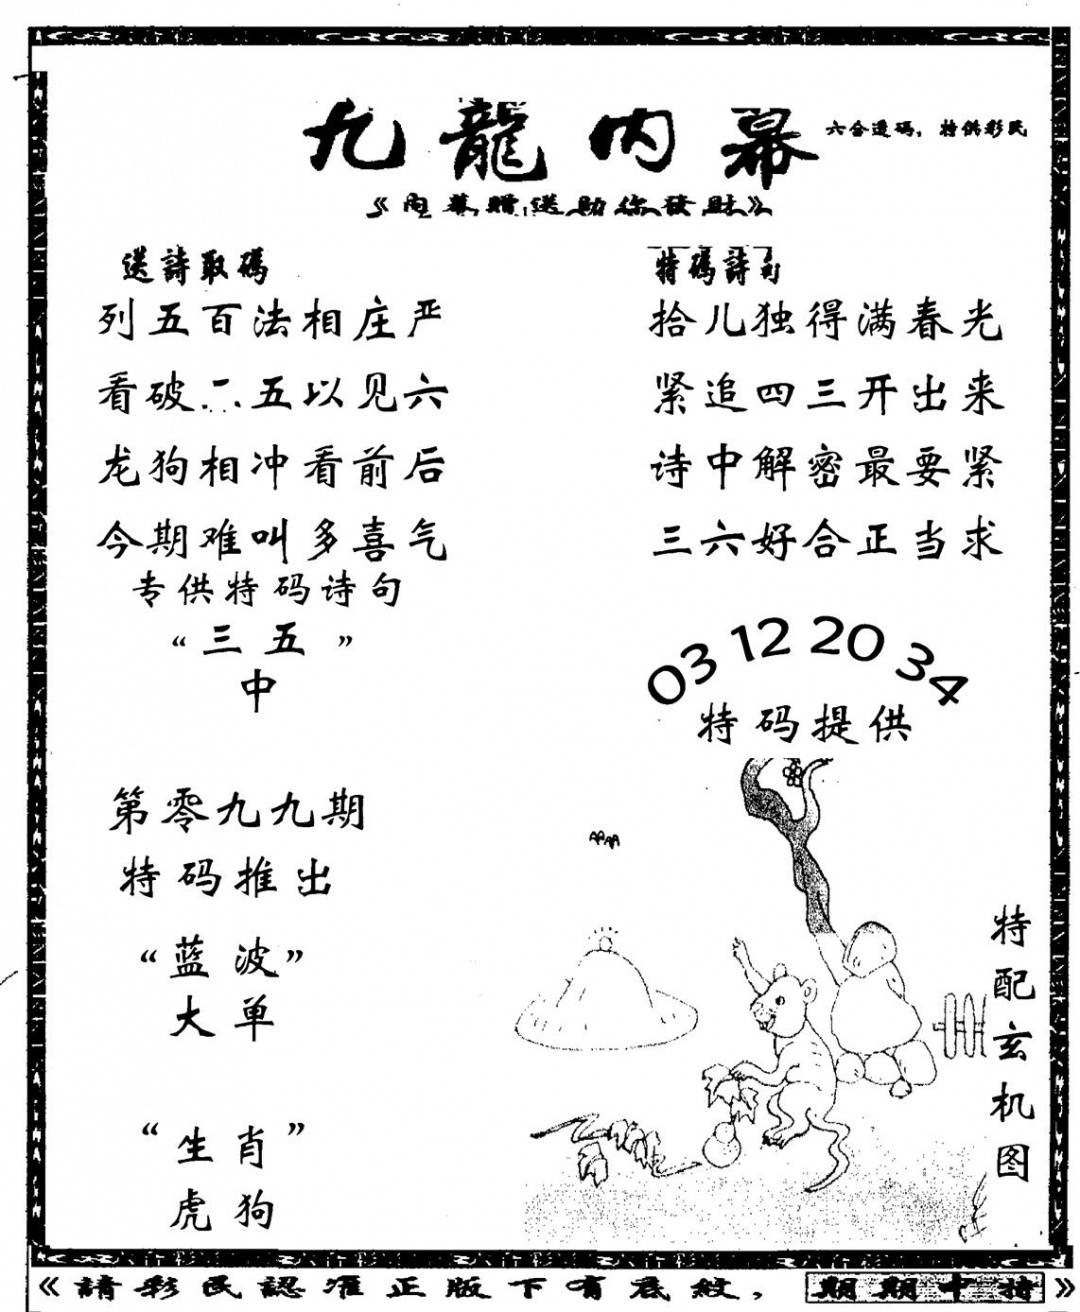 九龍内幕
六合透码，特供彩民
《内幕赠送助你發財》
送詩取碼
列五百法相庄严
看破二五以见六
龙狗相冲看前后
今期难叫多喜气
专供特码诗句
“三五”
中
第零九九期
特码推出
“蓝波”
大单
“生肖”
虎狗
特碼詩句
拾儿独得满春光
紧追四三开出来
诗中解密最要紧
三六好合正当求
03 12 20 34
特码提供
特配玄机图
《請彩民認准正版下有底紋，期期中特》